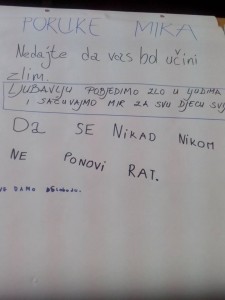 PORUKE MIRA
Nedajte da vas bol učini
zlim.
LJUBAVLJU POBJEDIMO ZLO U LJUDIMA
I SAČUVAJMO MIR ZA SVU DJECU
Da SE NiKAD NiKOM
NE PONOVI RAT.